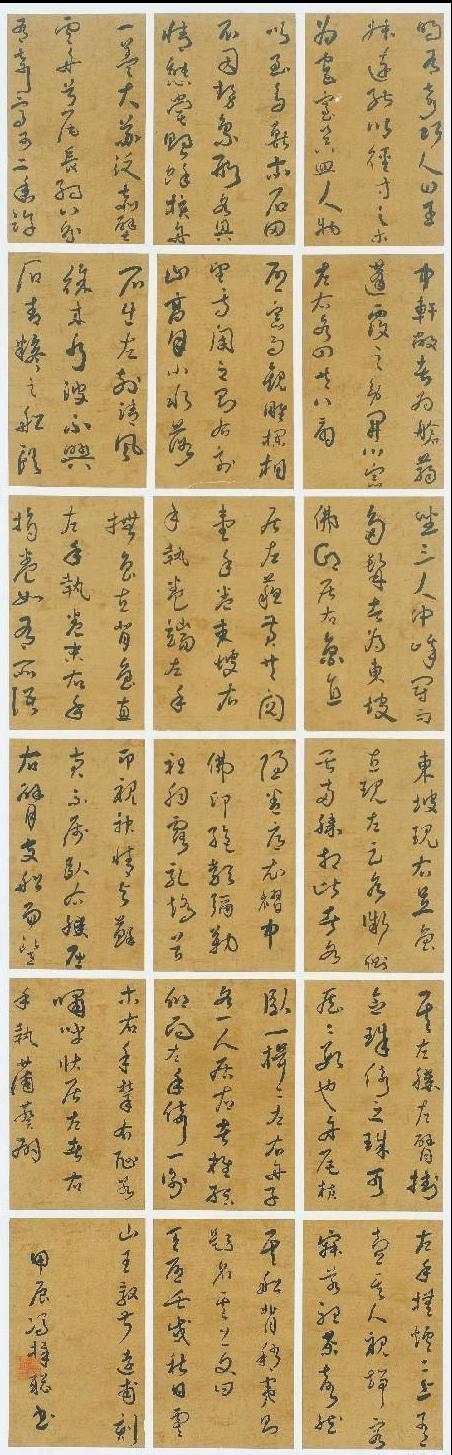 明有奇巧人曰王
叔遠能以徑寸之木
為宮室器皿人物
以至鳥獸木石罔
不因勢象形各具
情態嘗貽余核舟
一蓋大蘇泛赤壁
云舟首尾長約八分
有奇高可二黍許
中軒敞者為艙蒻
篷覆之旁開小窗
左右各四共八扇
啟窗而觀雕欄相
望焉閉之則右刻
山高月小水落
石出左刻清風
徐來水波不興
石青糝之船頭
坐三人中峨冠而
多髯者為東坡
佛印居右魯直
居左蘇黃共閱
壹手卷東坡右
手執卷端左手
撫魯直背魯直
左手執卷末右手
指卷如有所語
東坡現右足魯
直現左足各微側
其兩膝相比者各
隱卷底衣褶中
佛印絕類彌勒
袒胸露乳矯首
昂視神情與蘇
黃不屬臥右膝詘
右臂支船而豎
其左膝左臂掛
念珠倚之珠可
歷歷數也舟尾橫
臥一楫楫左右舟子
各一人居右者椎髻
仰面左手倚一衡
木右手攀右趾若
嘯呼狀居左者右
手執蒲葵扇
左手撫爐爐上有
壺其人視端容
寂若聽茶聲然
其船背稍夷則
題名其上文曰
天啟壬戌秋日虞
山王毅叔遠甫刻
甲辰馮擇聰書